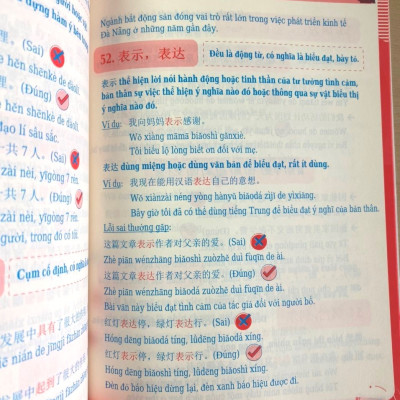 dựng hàm ý bên
理。(Sai)
ě hěn shēnkè de dàolǐ.
理。(Đúng)
ě hěn shēnkè de dàolǐ.
đạo lí sâu sắc.
一共 7 人。(Sai)
zài nèi, yīgòng 7 rén.
一共 7 人。(Đúng)
zài nèi, yīgòng 7 rén.
người, trong đó có tôi.
Cụm cố định, có nghĩa
发展中具有了很大的
nián de jīngjì fāzhǎn
发展中起到了很大的
Ngành bất động sản đóng vai trò rất lớn trong việc phát triển kinh tế
Đà Nẵng ở những năm gần đây.
52. 表示，表达
Đều là động từ, có nghĩa là biểu đạt, bày tỏ.
表示 thể hiện lời nói hành động hoặc tinh thần của tư tưởng tình cảm,
bản thân sự việc thể hiện ý nghĩa nào đó hoặc thông qua sự vật biểu thị
ý nghĩa nào đó.
Ví dụ: 我向妈妈表示感谢。
Wǒ xiàng māma biǎoshì gǎnxiè.
Tôi biểu lộ lòng biết ơn đối với mẹ.
表达 dùng miệng hoặc dùng văn bản để biểu đạt, rất ít dùng.
Ví dụ: 我现在能用汉语表达自己的意思。
Wǒ xiànzài néng yòng hànyǔ biǎodá zìjǐ de yìxiǎng.
Bây giờ tôi đã có thể dùng tiếng Trung để biểu đạt ý nghĩ của bản thân.
Lỗi sai thường gặp:
这篇文章表示作者对父亲的爱。(Sai)
Zhè piān wénzhāng biǎoshì zuòzhě duì fùqīn de ài.
这篇文章表达作者对父亲的爱。(Đúng)
Zhè piān wénzhāng biǎodá zuòzhě duì fùqīn de ài.
Bài văn này biểu đạt tình cảm của tác giả đối với người bố.
红灯表达停，绿灯表达行。(Sai)
Hóng dēng biǎodá tíng, lǜdēng biǎodá xíng.
红灯表示停，绿灯表示行。(Đúng)
Hóng dēng biǎoshì tíng, lǜdēng biǎoshì xíng.
Đèn đỏ báo hiệu dừng lại, đèn xanh báo hiệu được đi.